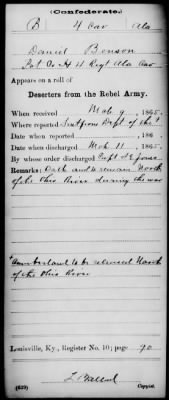 (Confederate.)
B 4 Cav Ala
Daniel Benson
Pvt Co H 4 Regt Ala Cav
Appears on a roll of
Deserters from the Rebel Army.
When received Mch 9, 1865.
Where reported Dept of the †
Date when reported , 186 .
Date when discharged Mch 11, 1865.
By whose order discharged
Remarks: Oath and to remain North
of the Ohio River during the war
† Cumberland to be released North
of the Ohio River
Louisville, Ky., Register No. 10; page 90
(639) Copyist.